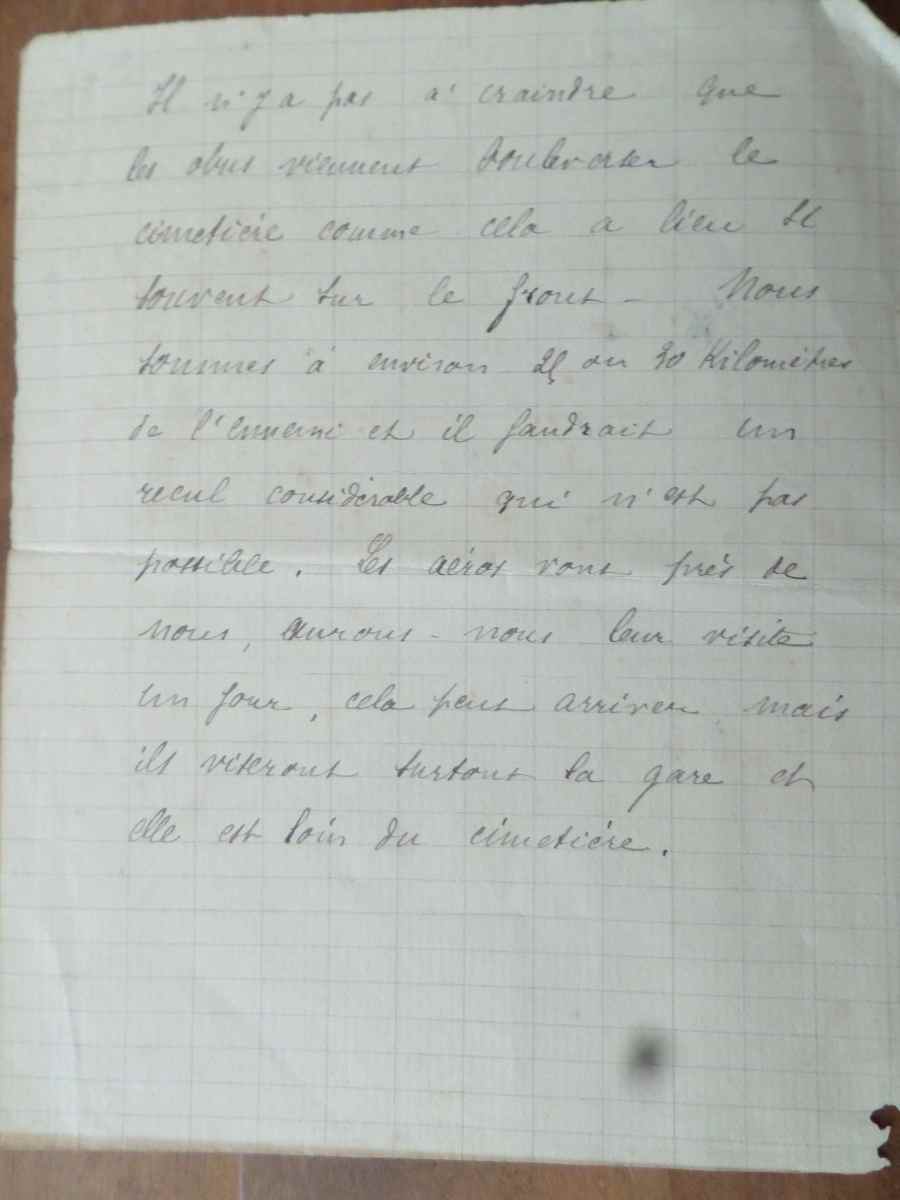 Il n'y a pas à craindre que
les obus viennent bouleverser le
cimetière comme cela a lieu si
souvent sur le front - Nous
sommes à environ 25 ou 30 Kilomètres
de l'ennemi et il faudrait un
recul considérable qui n'est pas
possible. Les aéros vont près de
nous, aurons-nous leur visite
un jour, cela peut arriver, mais
ils viseront surtout la gare et
elle est loin du cimetière.